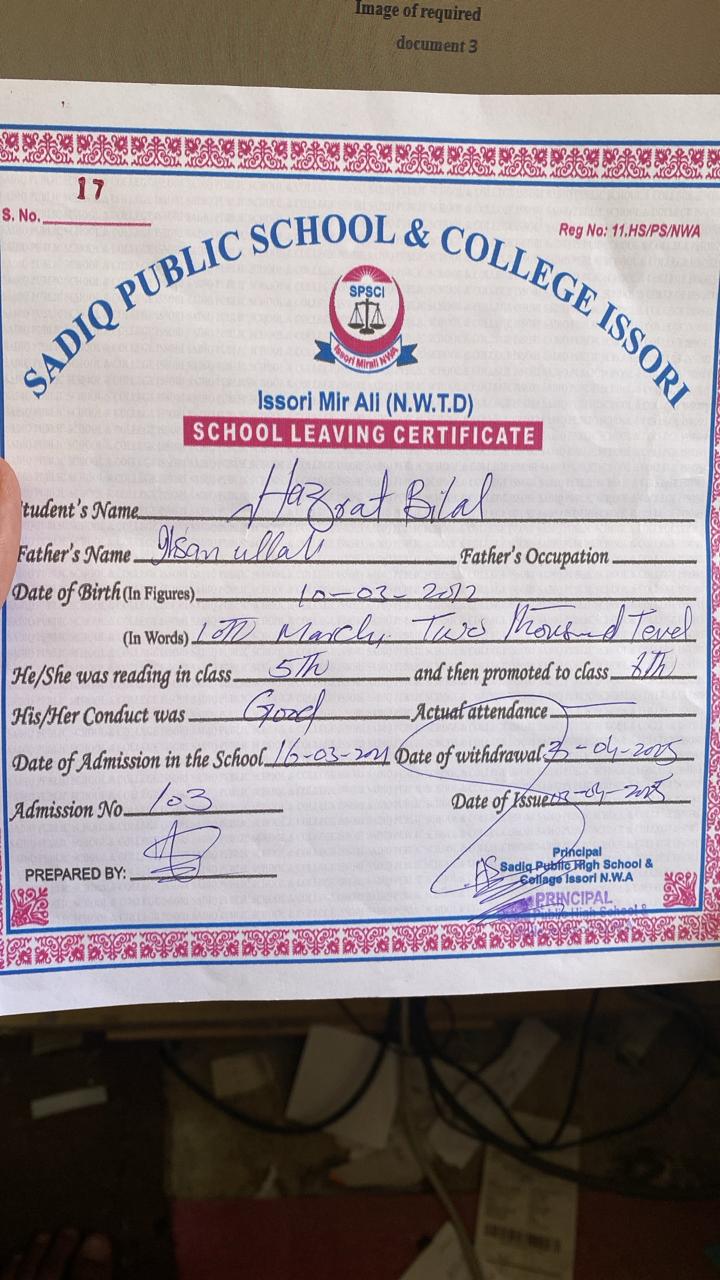 Image of required
document 3
17
S. No.
Reg No: 11.HS/PS/NWA
SADIQ PUBLIC SCHOOL & COLLEGE ISSORI
SPSCI
Issori Mirali NWA
Issori Mir Ali (N.W.T.D)
SCHOOL LEAVING CERTIFICATE
tudent's Name Hazrat Bilal
Father's Name Ihsan ullah Father's Occupation
Date of Birth (In Figures) 10-03-2012
(In Words) 10th March, Two Thousand
He/She was reading in class 5th and then promoted to class
His/Her Conduct was Good Actual attendance
Date of Admission in the School 16-03-2021 Date of withdrawal
Admission No. 103
Date of Issue
PREPARED BY:
Principal
Sadiq Public High School &
Collage Issori N.W.A
PRINCIPAL
Public High School &